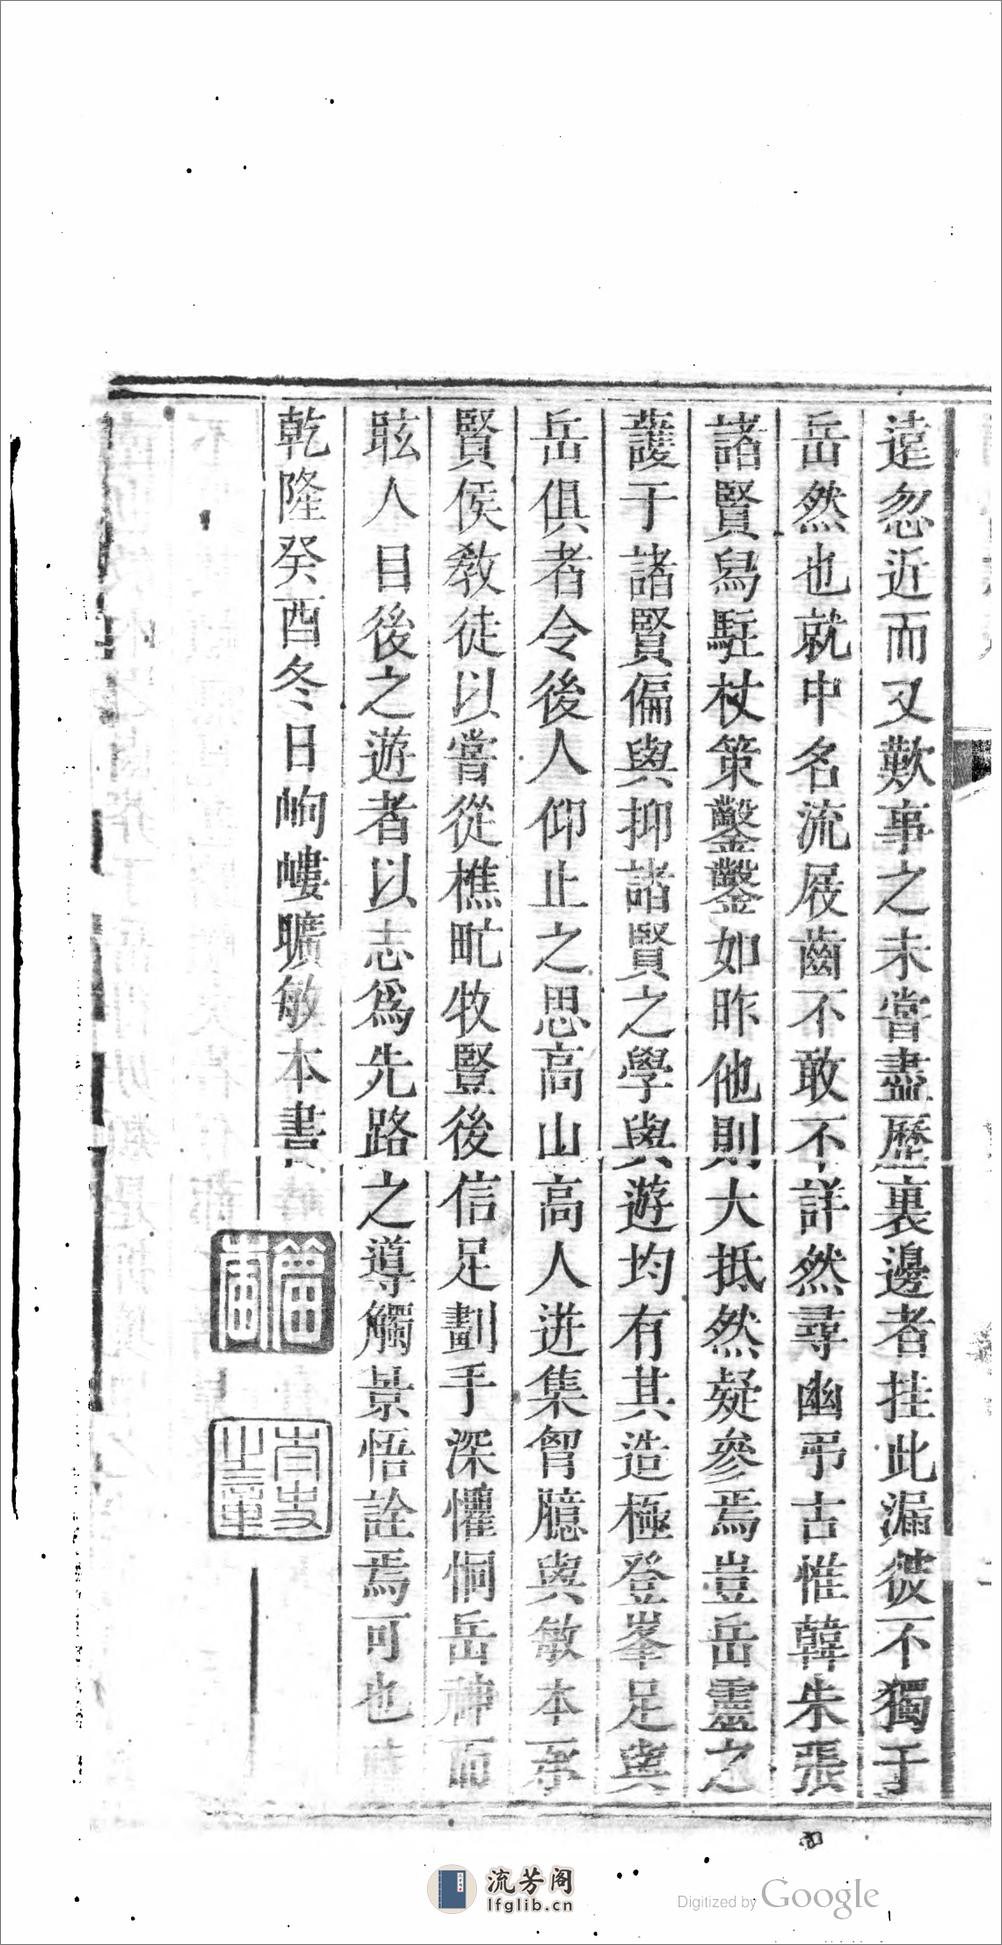 遠忽近而又歎事之未嘗盡歷裏邊者挂此漏彼不獨于
岳然也就中名流屐齒不敢不詳然尋幽弔古惟韓朱張
諸賢舄駐杖策鑿鑿如昨他則大抵然疑參焉豈岳靈之
護于諸賢偏與抑諸賢之學與遊均有其造極登峯足與
岳俱者令後人仰止之思高山高人迸集胷臆與敏本忝
賢侯教徒以嘗從樵甿牧豎後信足劃手深懼恫岳神而
眩人目後之遊者以志爲先路之導觸景悟詮焉可也
乾隆癸酉冬日岣嶁曠敏本書
流芳阁
lfglib.cn
Digitized by Google